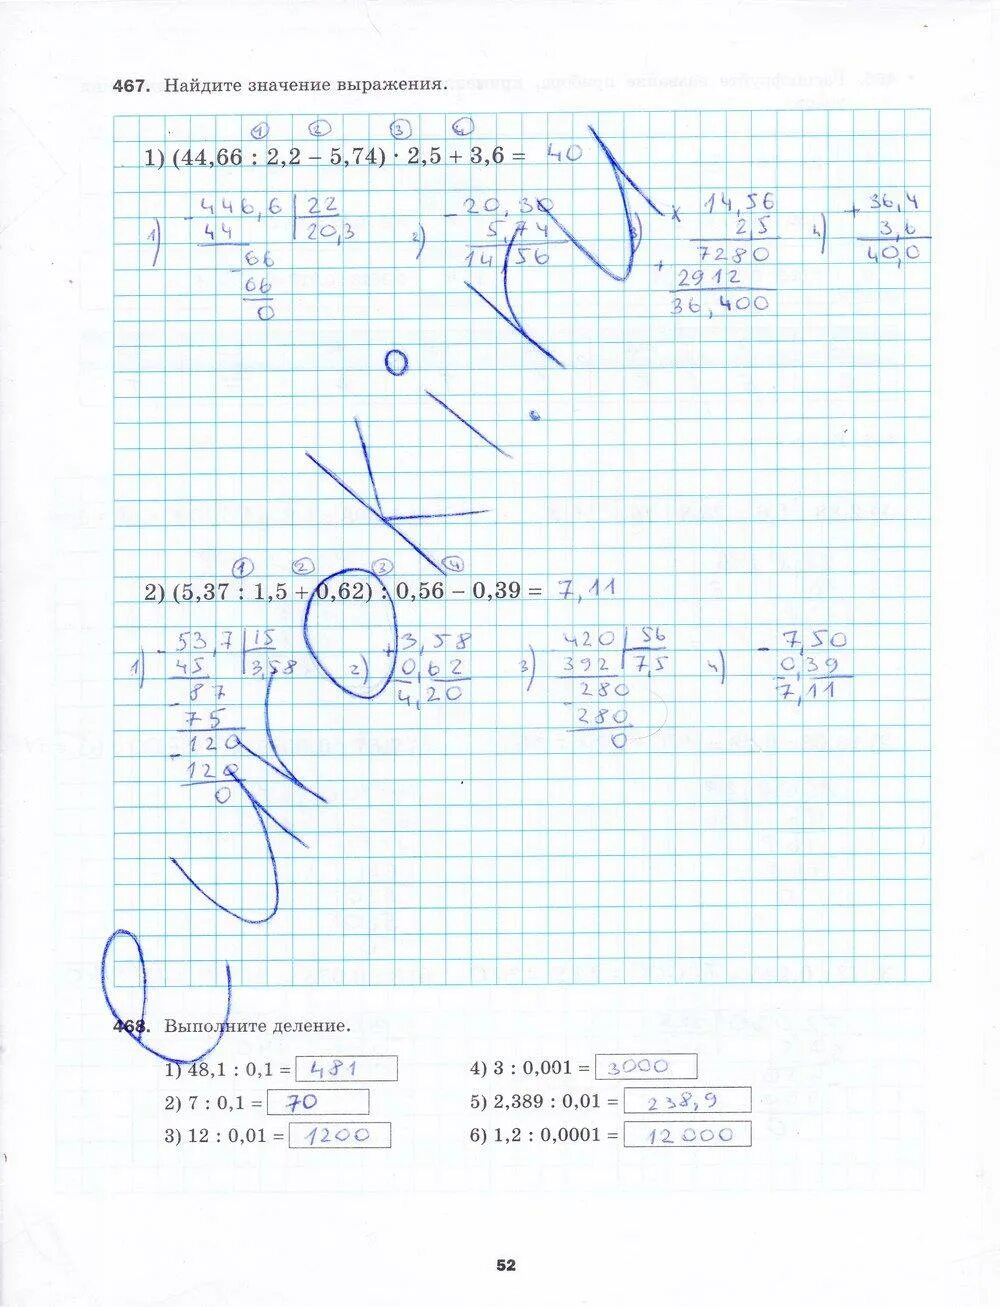 467. Найдите значение выражения.
1 2 3 4
1) (44,66 : 2,2 – 5,74) · 2,5 + 3,6 = 40
1) 446,6 | 22
– 44 | 20,3
66
– 66
0
2) – 20,30
5,74
14,56
3) × 14,56
2,5
7280
+ 2912
36,400
4) + 36,4
3,6
40,0
1 2 3 4
2) (5,37 : 1,5 + 0,62) : 0,56 – 0,39 = 7,11
1) – 53,7 | 15
45 | 3,58
– 87
75
– 120
120
0
2) + 3,58
0,62
4,20
3) – 420 | 56
392 | 7,5
– 280
280
0
4) – 7,50
0,39
7,11
468. Выполните деление.
1) 48,1 : 0,1 = 481
2) 7 : 0,1 = 70
3) 12 : 0,01 = 1200
4) 3 : 0,001 = 3000
5) 2,389 : 0,01 = 238,9
6) 1,2 : 0,0001 = 12000
52